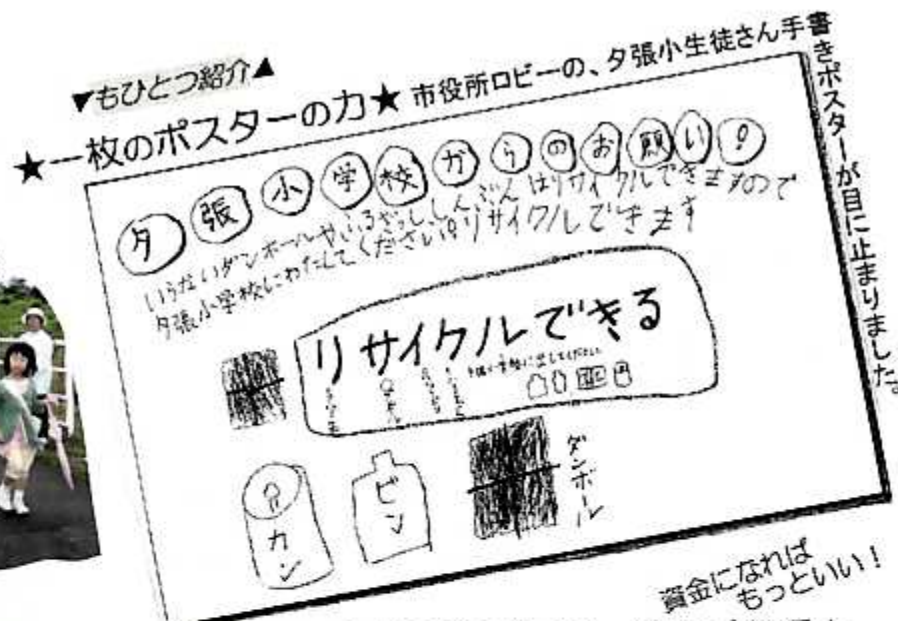 ▼もひとつ紹介▲
★一枚のポスターの力★市役所ロビーの、夕張小生徒さん手書きポスターが目に止まりました。
夕張小学校からのお願い!
いらないダンボールやふるざっし、しんぶんはリサイクルできますので
夕張小学校にわたしてください。リサイクルできます
リサイクルできる
カン
ビン
ダンボール
資金になれば
もっといい!